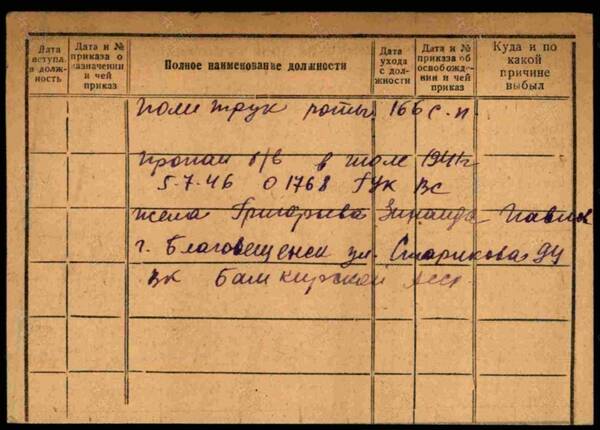 Дата вступл. в долж-ность
Дата и № приказа о назначении и чей приказ
Полное наименование должности
Дата ухода с дол-жности
Дата и № приказа об освобожде-нии и чей приказ
Куда и по какой причине выбыл
Политрук роты 166 с.п
Пропал б/в в июле 1941 г
5-7-46 01768 ГУК ВС
жена Григорьева Зинаида
г. Благовещенск ул. Старикова
ВК Башкирской